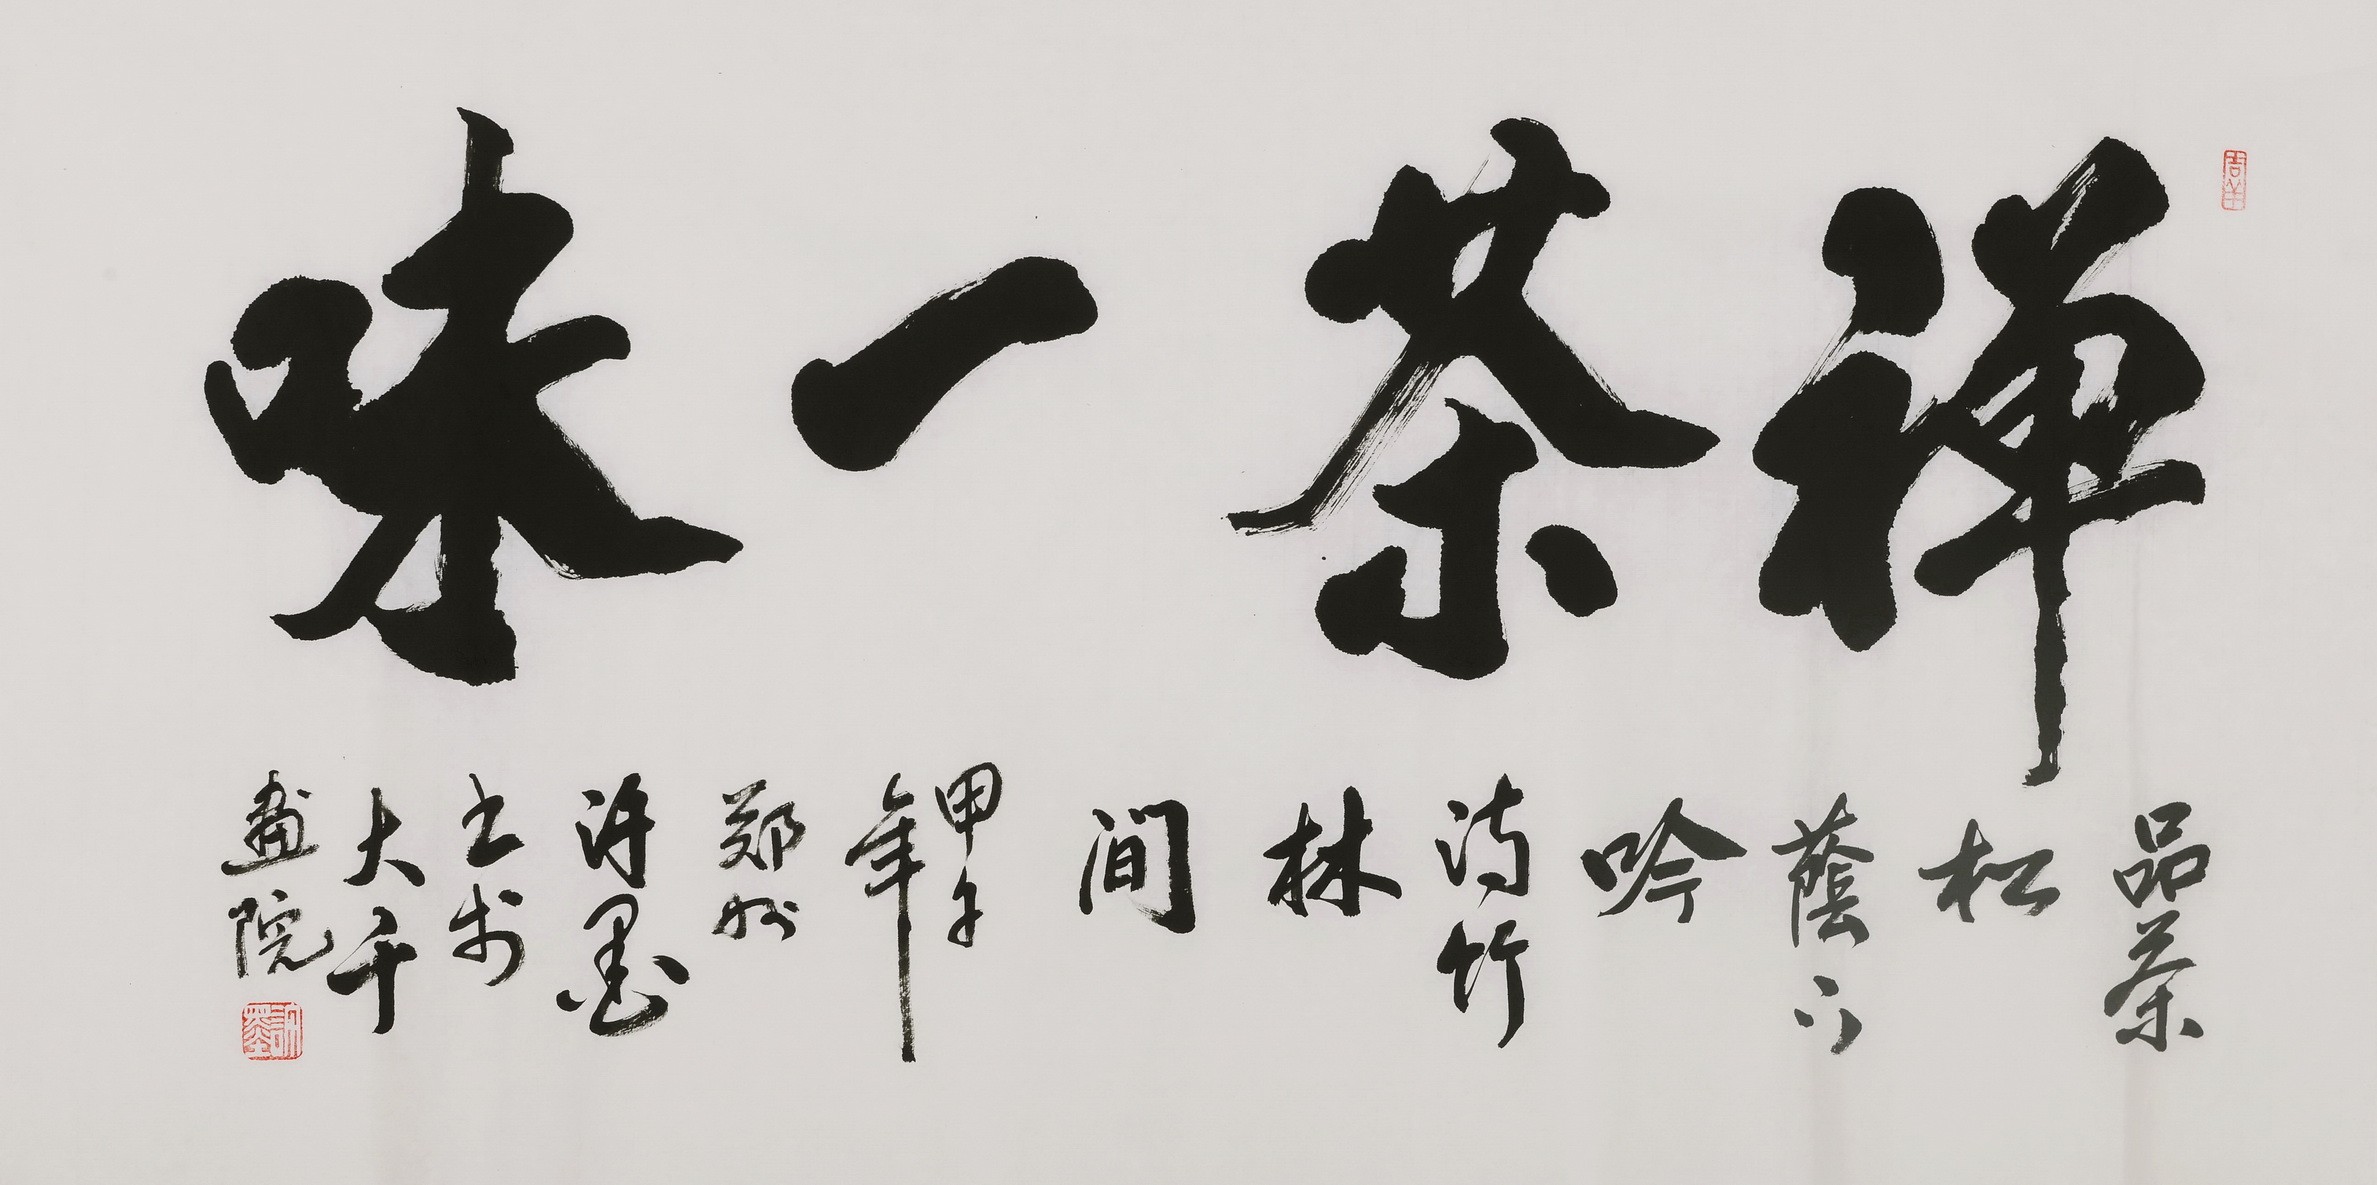 禅茶一味
品茶
松
蔭下
吟
诗竹
林
间
甲子
年
郑州
许墨
书于
大千
画院